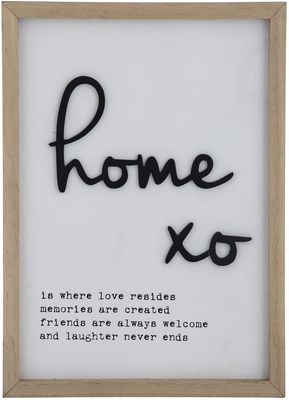 home
xo
is where love resides
memories are created
friends are always welcome
and laughter never ends